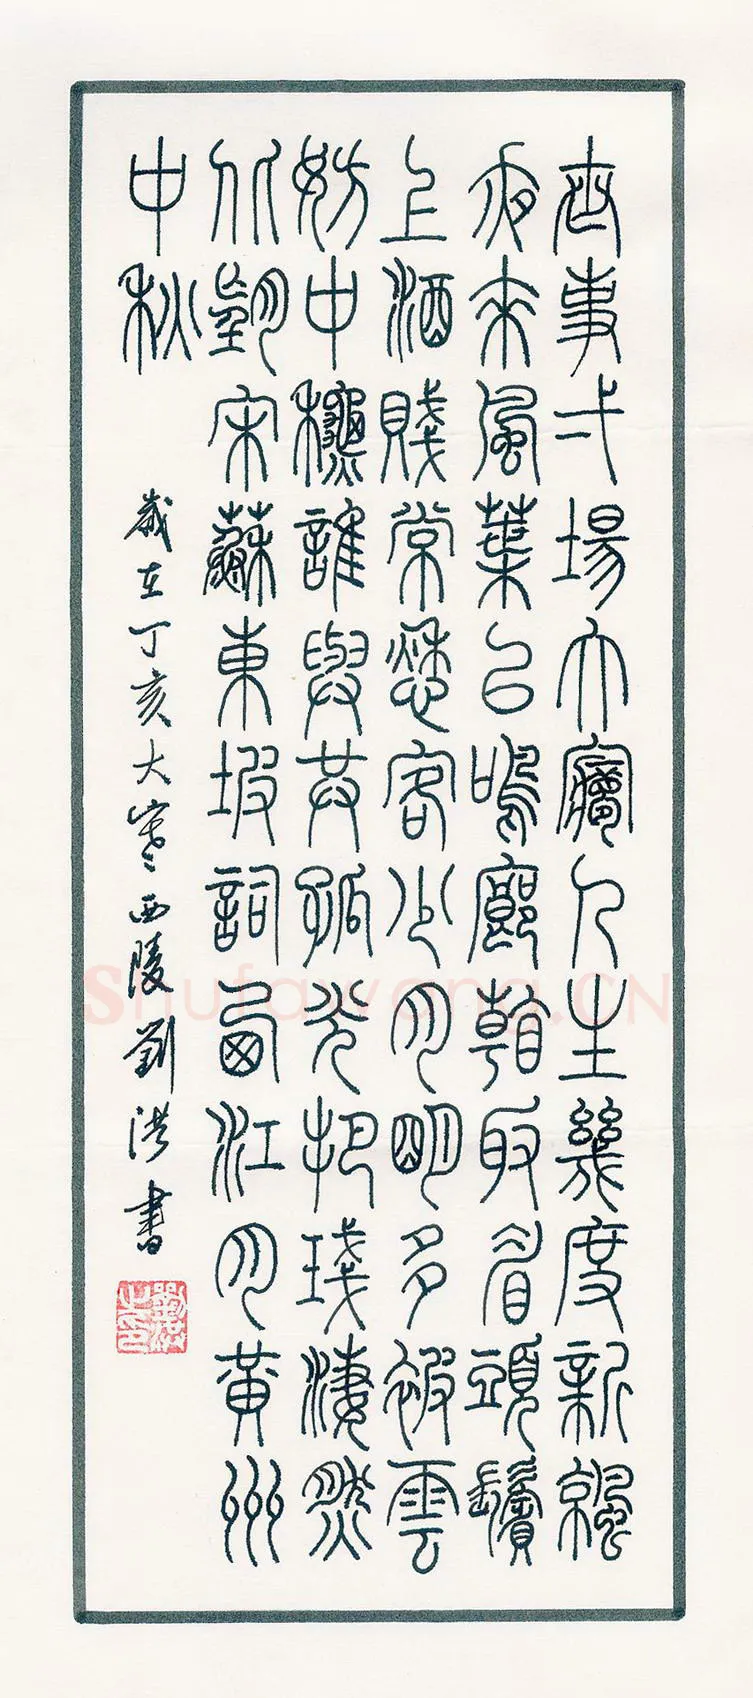 世事弌場大夢人生幾度新涼
夜來風葉已鳴廊看取眉頭鬢
上酒賤常愁客少月明多被雲
妨中秋誰與共孤光把琖淒然
北望宋蘇東坡詞西江月黃州
中秋
歲在丁亥大寒西陵劉洪書
劉洪之印
Shufawang.CN